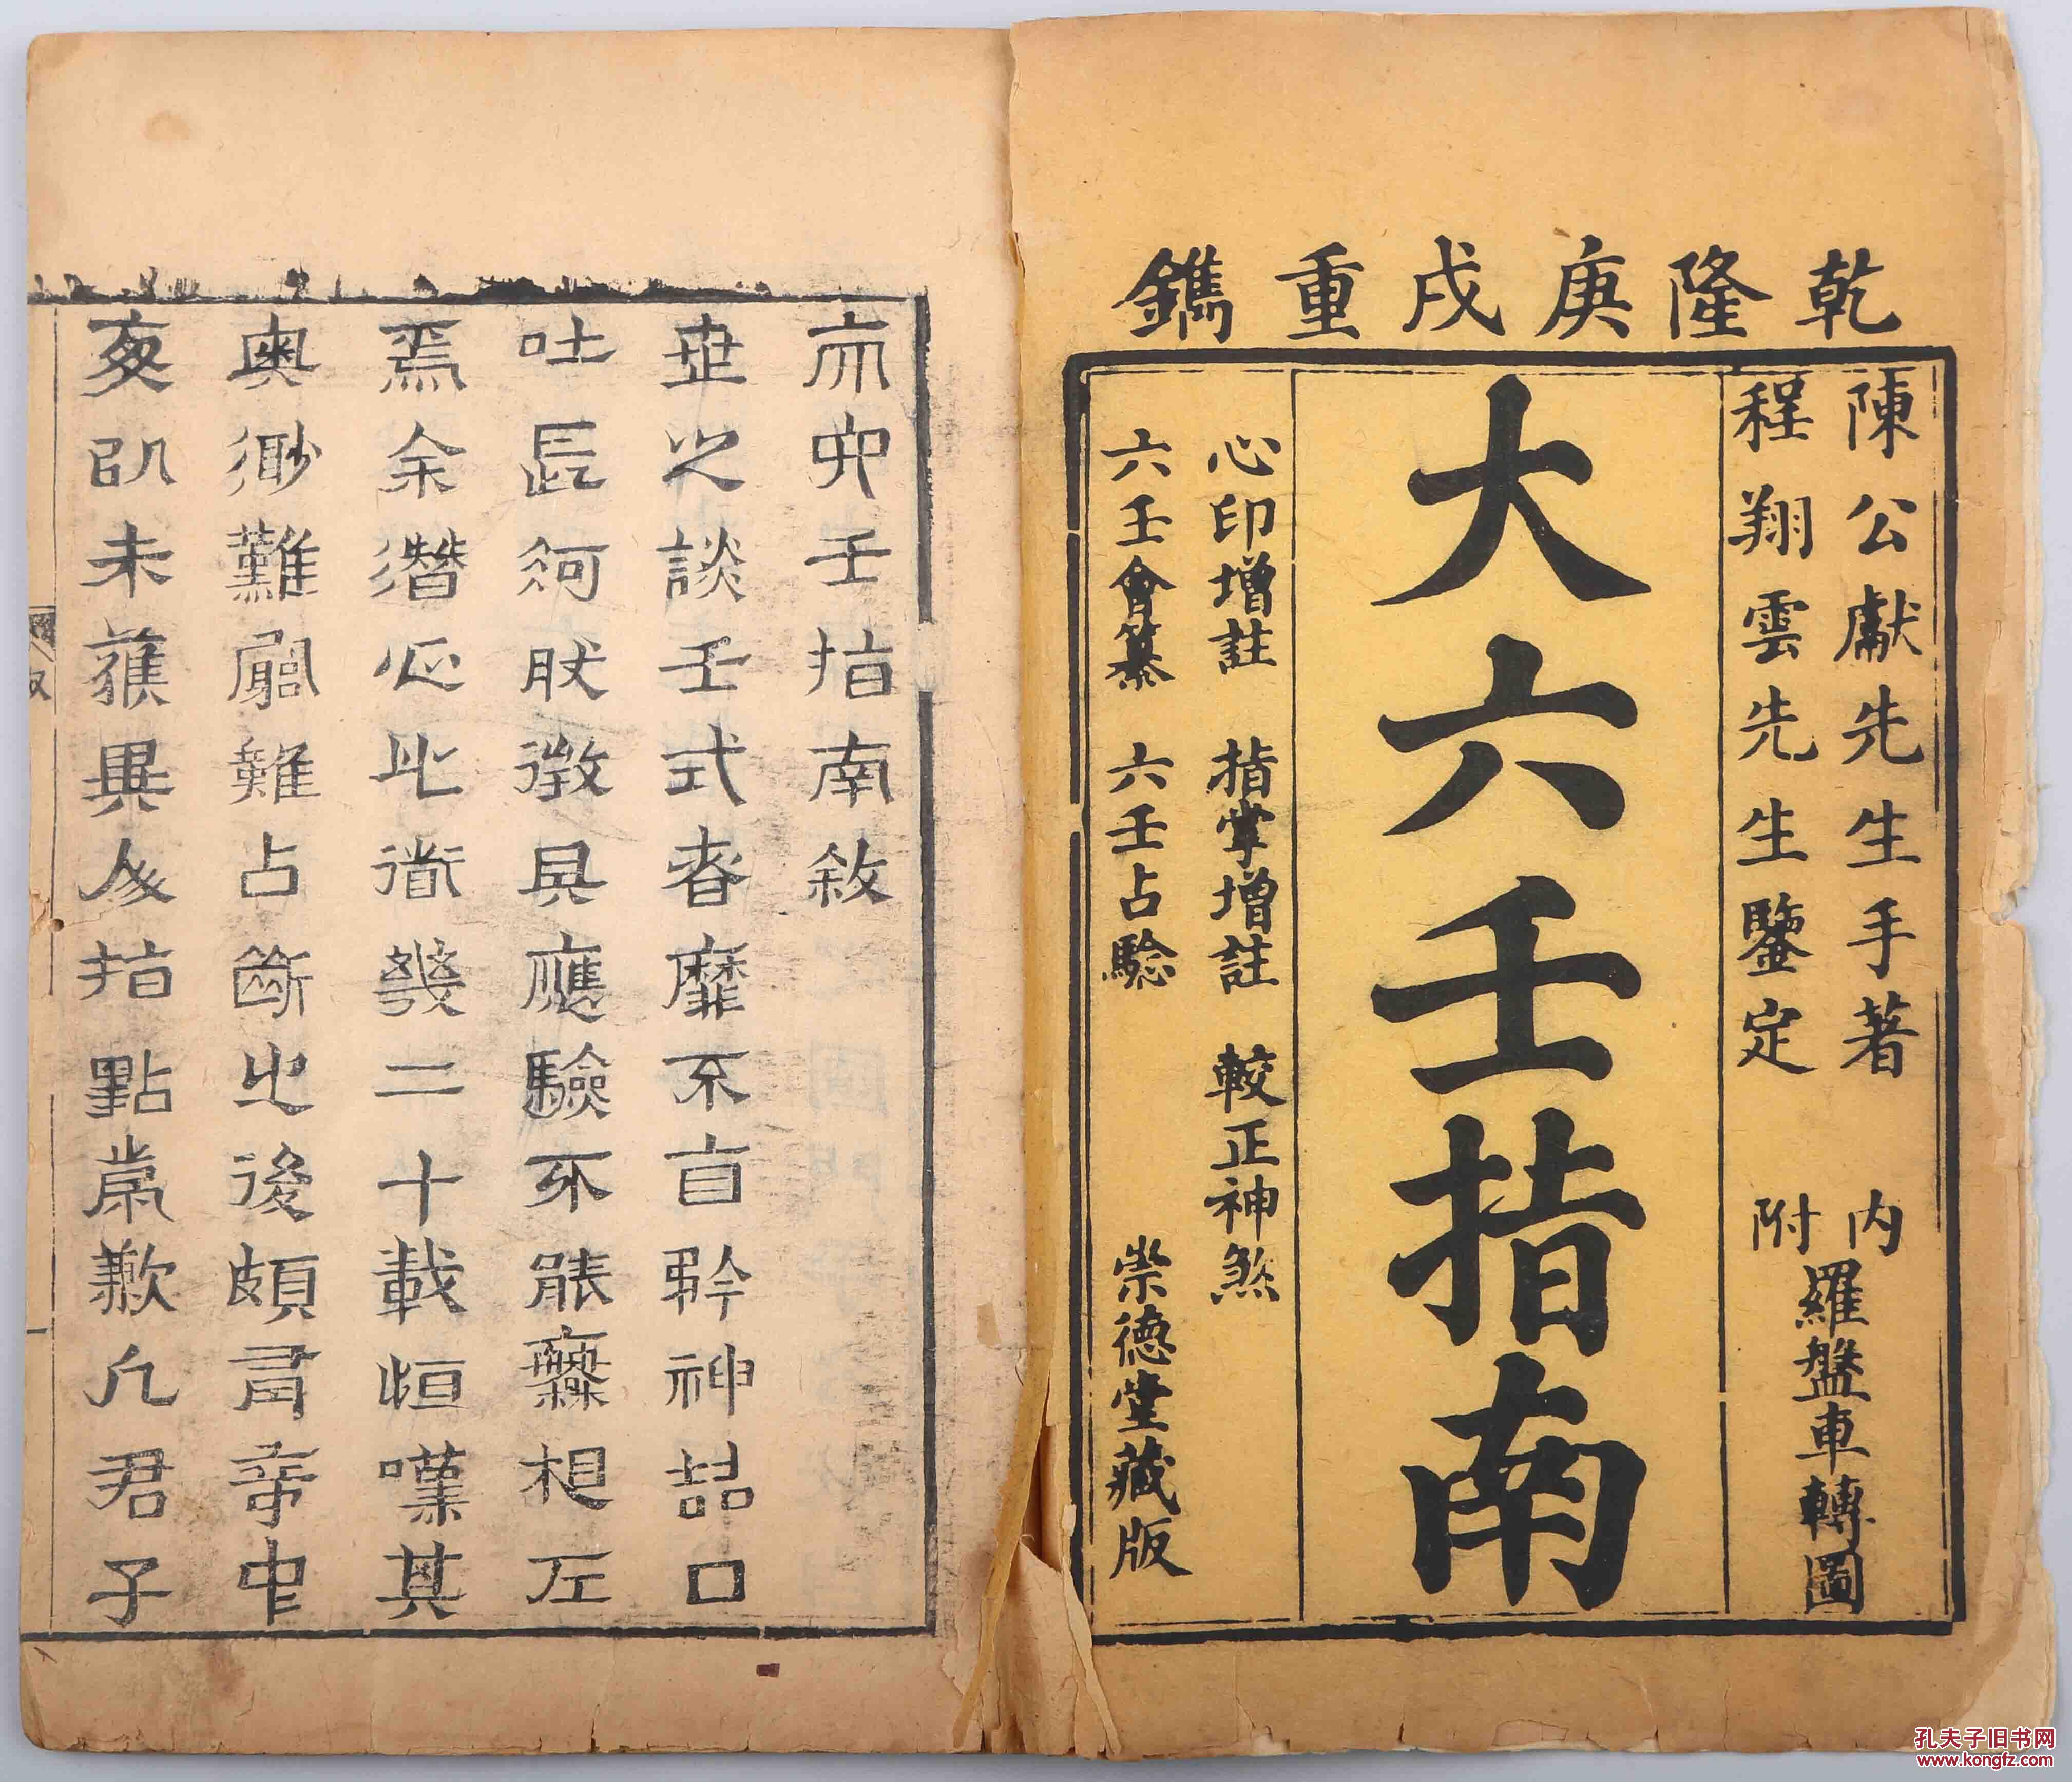 乾隆庚戌重鐫
陳公獻先生手著
程翔雲先生鑒定
內附羅盤車轉圖
大六壬指南
心印增註 指掌增註 較正神煞
六壬會纂 六壬占驗
崇德堂藏版
六壬指南敘
世之談壬式者靡不盲神喆口
吐長河狀徵其應驗不能爽相左
焉余潛心此道幾二十載恒嘆其
奧渺難窺雖占斷之後頗有奇中
亥以未獲異人指點為歉凡君子
孔夫子旧书网
www.kongfz.com